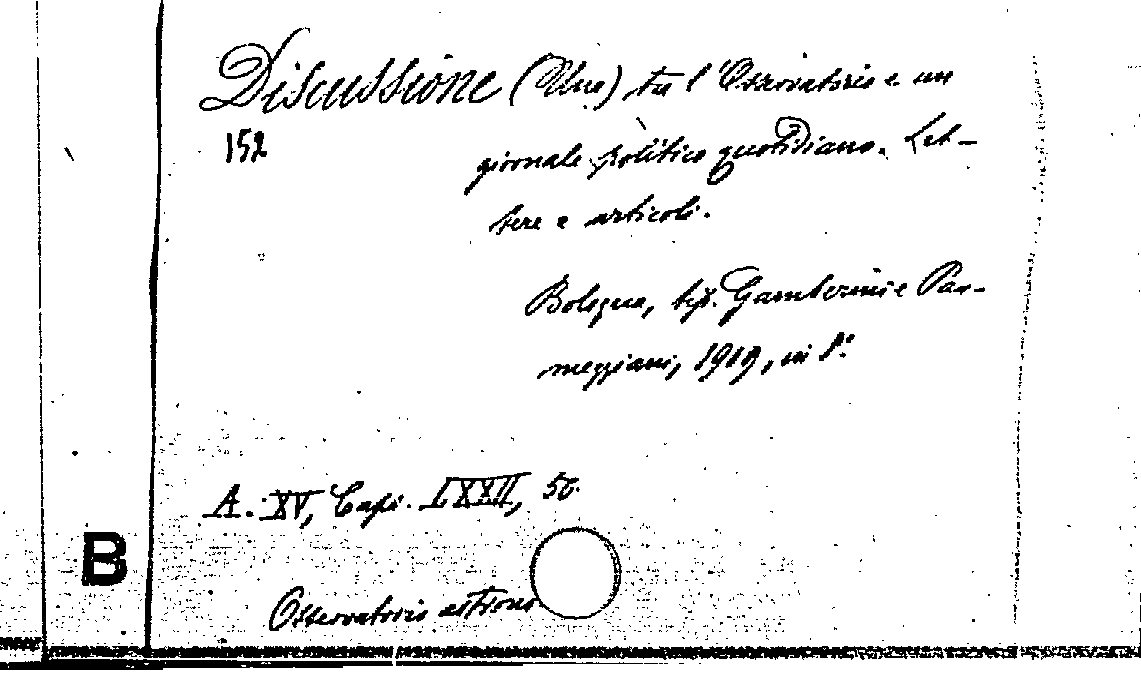 Discussione (Una) tra l'Osservatorio e un
152
giornale politico quotidiano. Let-
tere e articoli.
Bologna, tip. Gamberini e Par-
meggiani, 1919, in 8.°
A. XV, Caps. LXXII, 50.
B
Osservatorio astrono